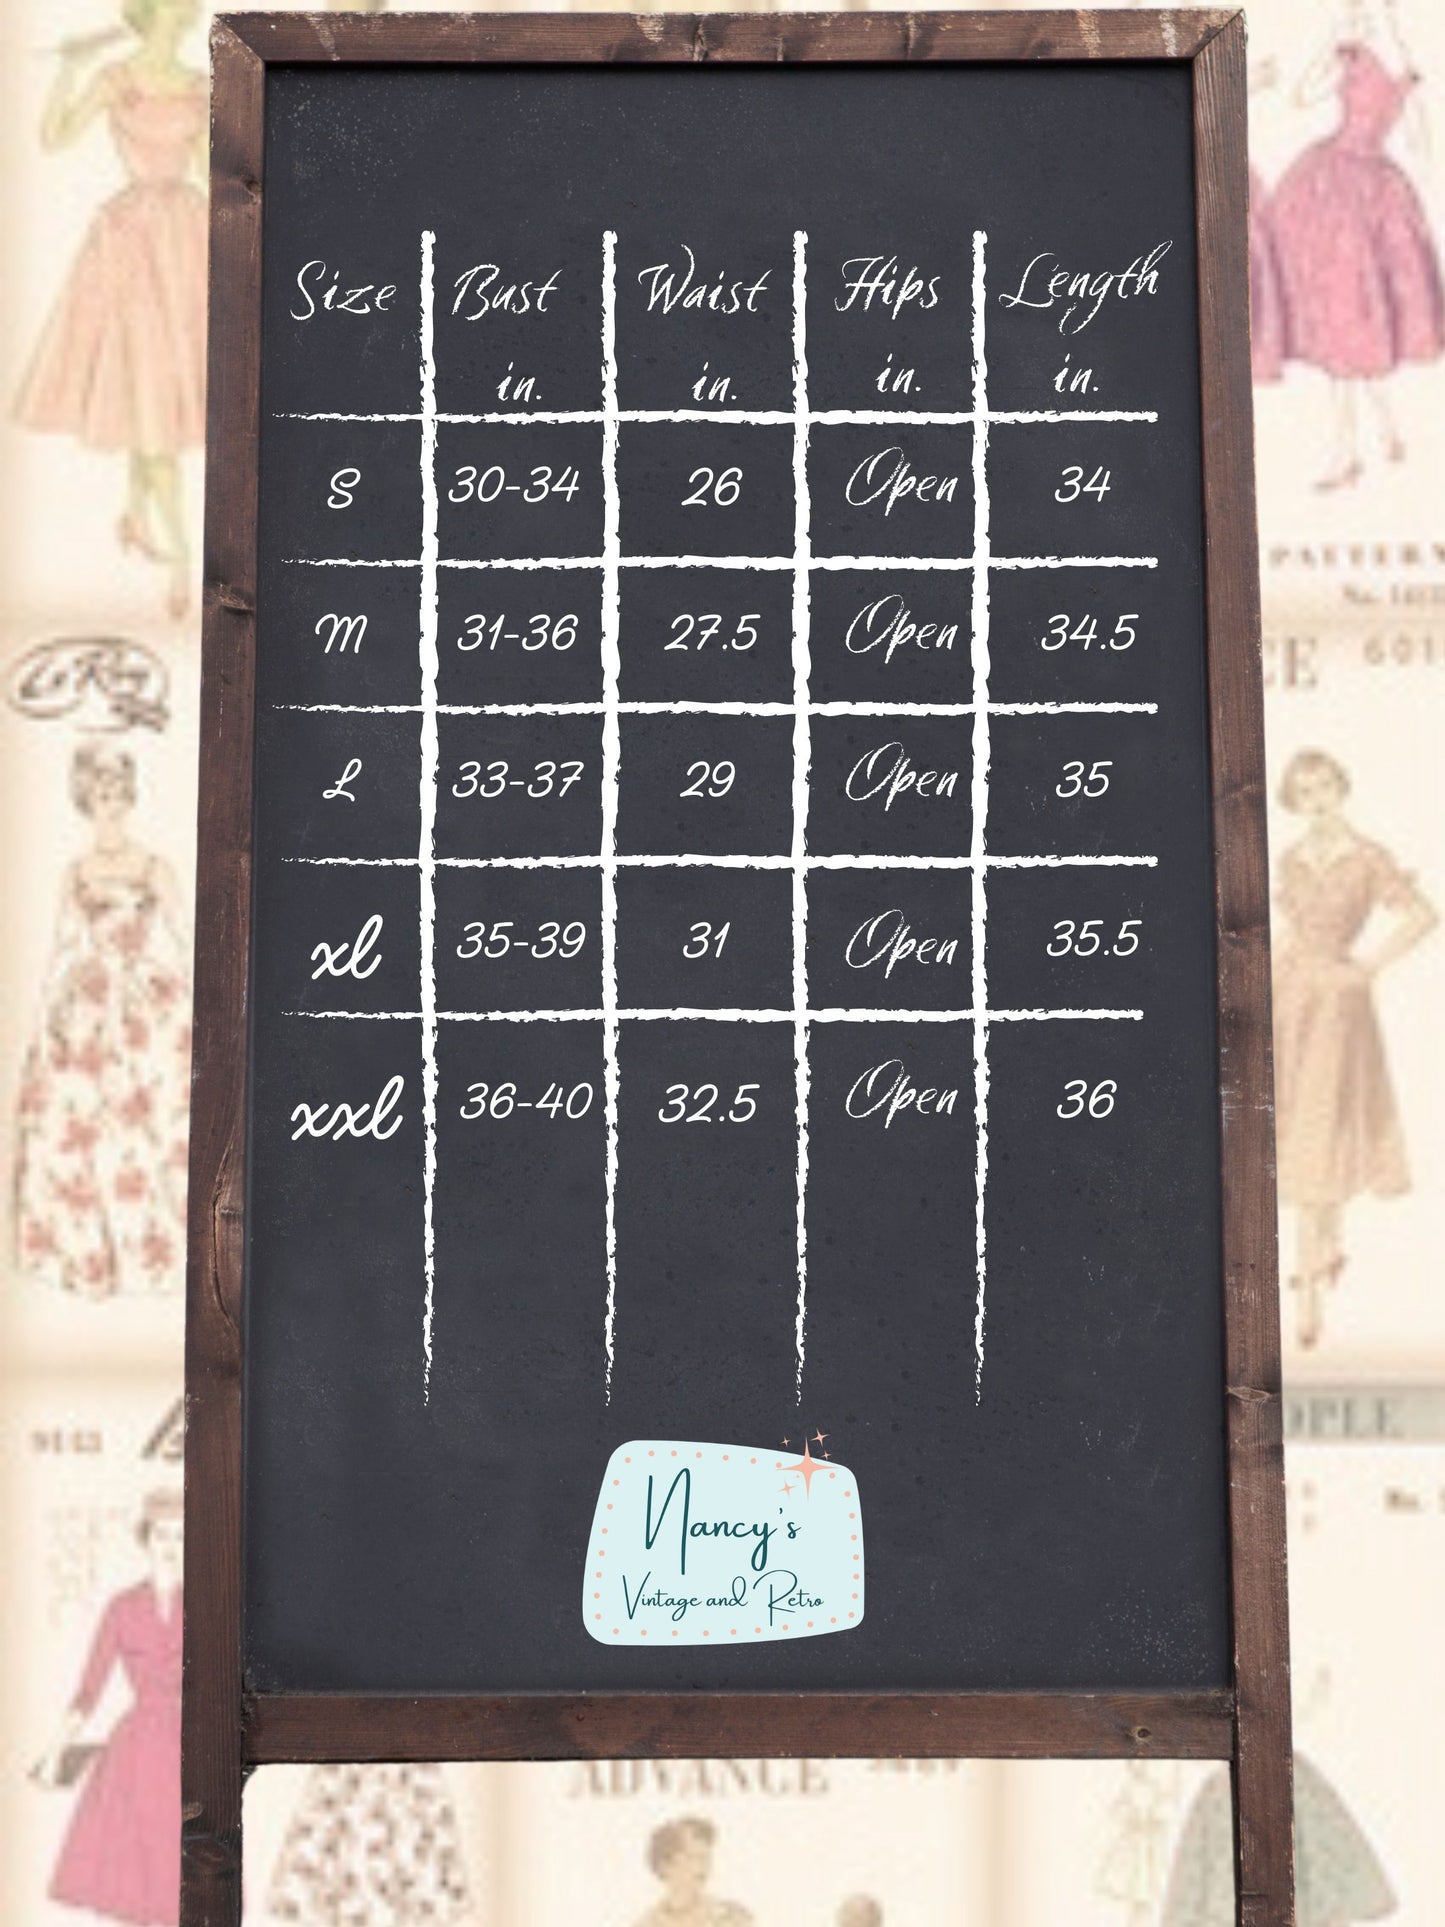 Size Bust Waist Hips Length
in. in. in. in.
S 30-34 26 Open 34
M 31-36 27.5 Open 34.5
L 33-37 29 Open 35
xl 35-39 31 Open 35.5
xxl 36-40 32.5 Open 36
Nancy's
Vintage and Retro
PATTERN
9142
ADVANCE